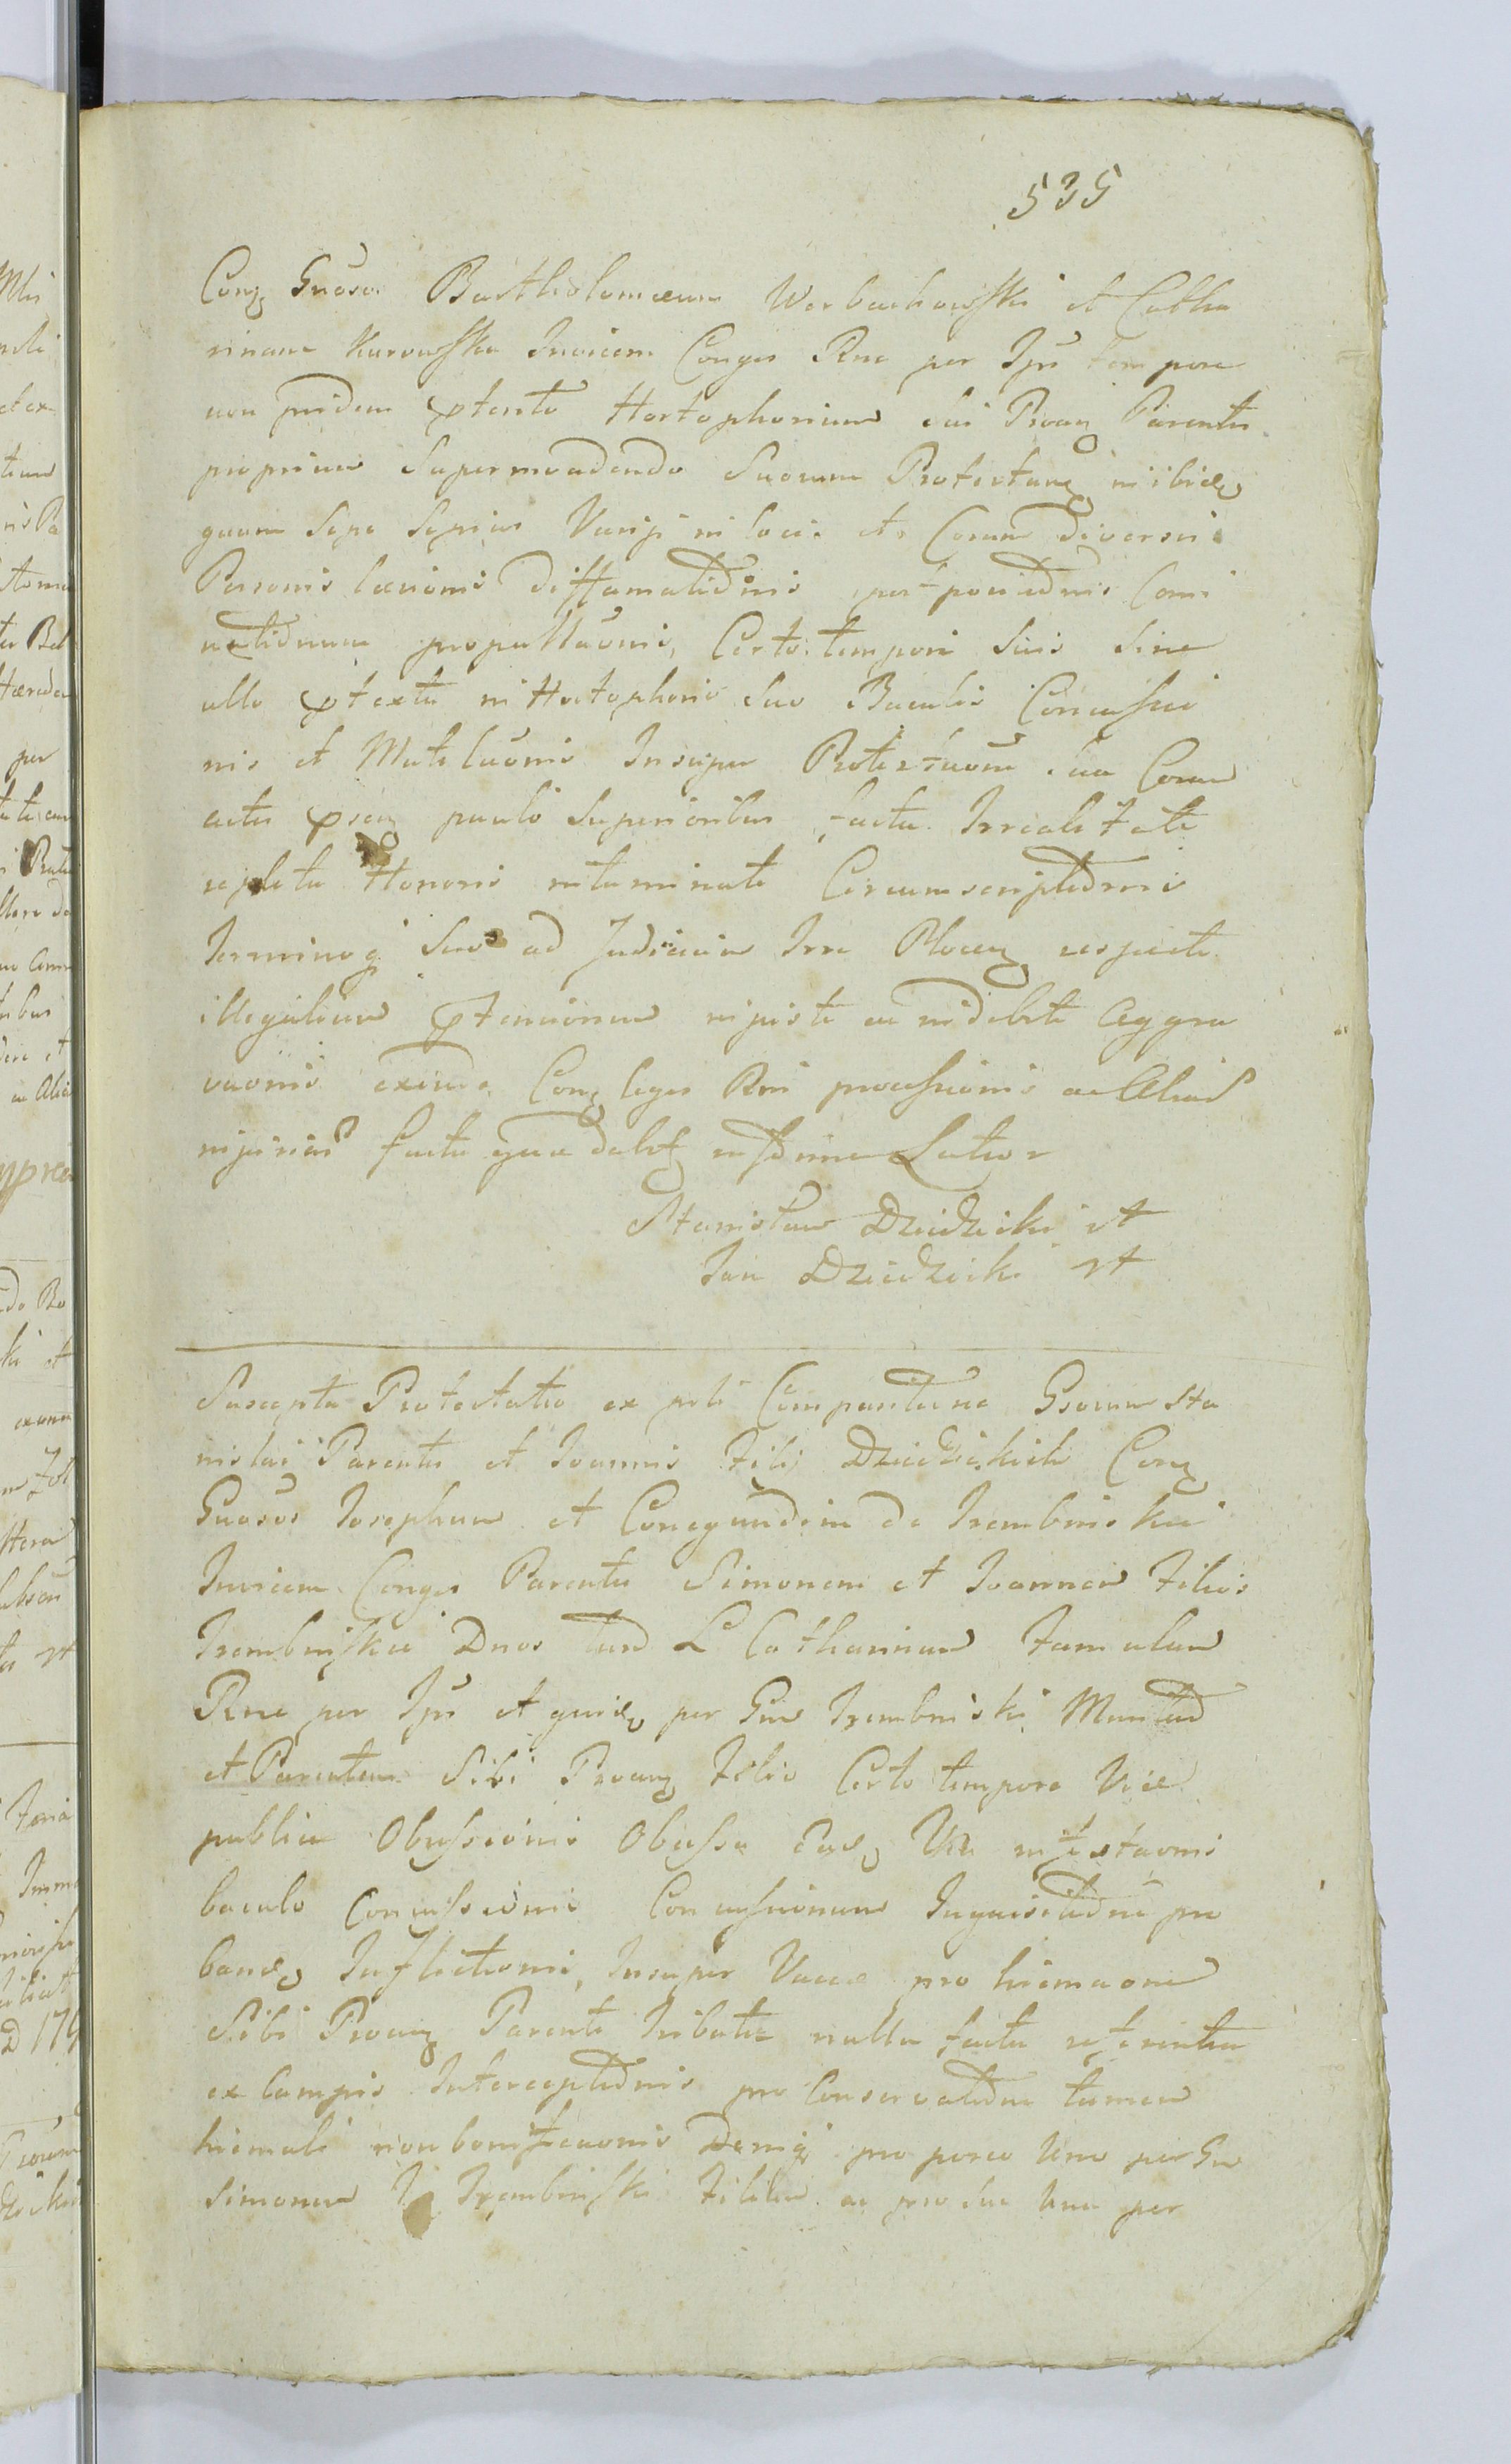 535
Conq Gnosos Bartholomaeum Worbachowski et Catha
rinam Kurowska Invicem Conges Rne per Ipsi tempore
non pridem ptento Hortophorium sui Proanq Parentis
proprium Supermeadendo Suorum Protestanq inibiq
quam Sepe Sepius Varijs in locis et Coram diversis
Personis laesionis diffamationis
propallaonis, Certo tempori suis sine
ullo ptextu in Hortophorio suo Baculis Concussio
nis et Mutilaonis Insuper Protestaone sua Coram
actis psenq paulo Superioribus facta Irrealitate
repleta Honoris intaminate Circumscriptionis
Terminoq suo ad Judicium Trre Plocenq respectu
illegalium ptensionum injuste ac indebite Aggra
vaonis exinde Conq leges Rni processionis ac Alias
injurias facta qua debet Lator
Stanisław Dziedzicki et
Jan Dziedzicki et
Suscepta Protestatio ex psli Comparitione Gsorum Sta
nislai Parentis et Joannis Filij Dziedzickich Conq
Gnosos Josephum et Conegundem de Trembinskie
Invicem Conges Parentes Simonem et Joannem Filios
Trembinskie Dnos tum L Catharinam Famulam
Rne per Ipsi et quidq per Gm Trembinski
et Parentem Sibi Proanq Filio Certo tempore Viae
publice Obessionis Obesse Eusq Via infestaonis
baculo Concussionis Concussionum Inquisitione pro
banq Inflictionis, Insuper Vacce pro hiemaone
Sibi Proanq Parenti tributae nulla facta referentia
ex Campis Interceptionis pro Conservatione tamen
hiemali non bonificaonis Deniq pro porco Uno per Gm
Simonem Trembinski Filium ac pro sue Una per